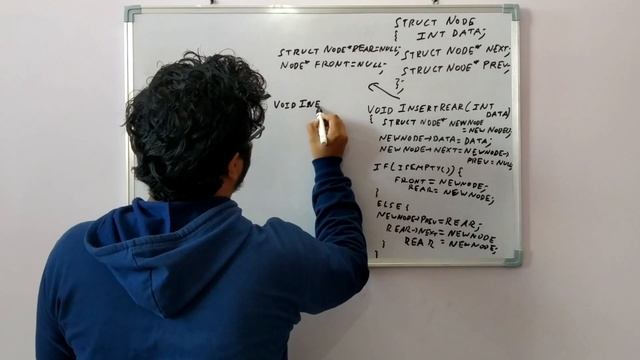 STRUCT NODE
{ INT DATA;
STRUCT NODE* NEXT;
STRUCT NODE* PREV;
};
STRUCT NODE* REAR=NULL;
NODE* FRONT=NULL;
VOID INE
VOID INSERTREAR(INT DATA)
{ STRUCT NODE* NEWNODE
= NEW NODE();
NEWNODE→DATA=DATA;
NEWNODE→NEXT=NEWNODE→
PREV=NULL
IF(ISEMPTY()){
FRONT=NEWNODE;
REAR=NEWNODE;
}
ELSE{
NEWNODE→PREV=REAR;
REAR→NEXT=NEWNODE
REAR=NEWNODE;
}
}